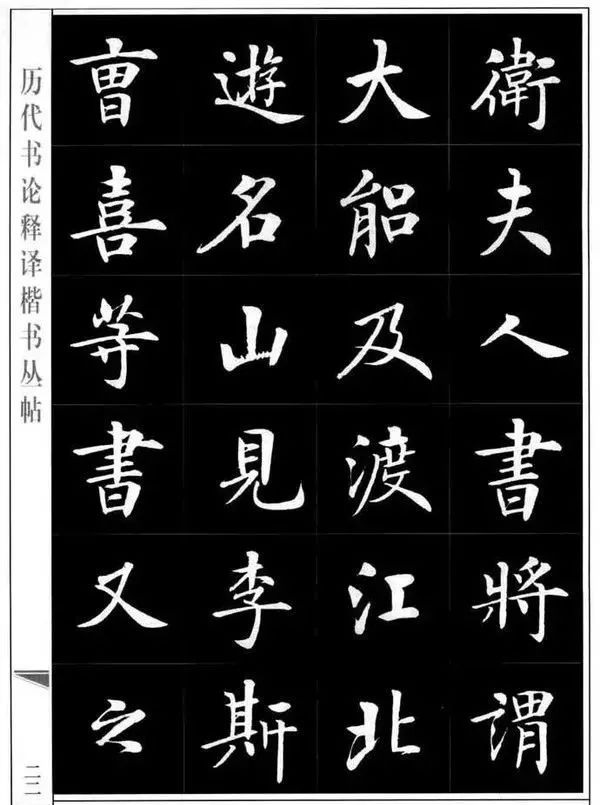 衛夫人書將謂
大能及渡江北
遊名山見李斯
曺喜等書又之
历代书论释译楷书丛帖
二二